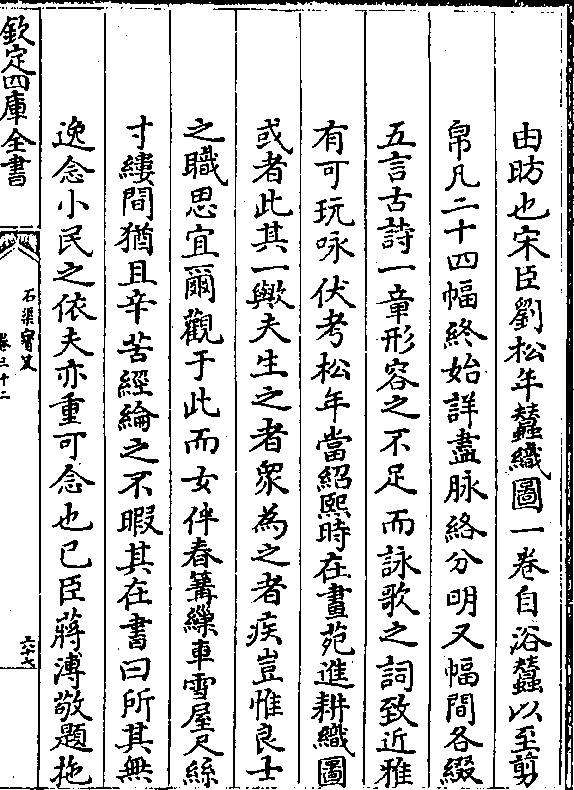 由昉也宋臣劉松年蠶織圖一卷自浴蠶以至剪
帛凡二十四幅終始詳盡脉絡分明又幅間各綴
五言古詩一章形容之不足而詠歌之詞致近雅
有可玩咏伏考松年當紹熙時在畫苑進耕織圖
或者此其一歟夫生之者衆為之者疾豈惟良士
之職思宜爾觀于此而女伴春篝繅車雪屋尺絲
寸縷間猶且辛苦經綸之不暇其在書曰所其無
逸念小民之依夫亦重可念也已臣蔣溥敬題拖
欽定四庫全書
石渠寶笈
卷三十二
六十七